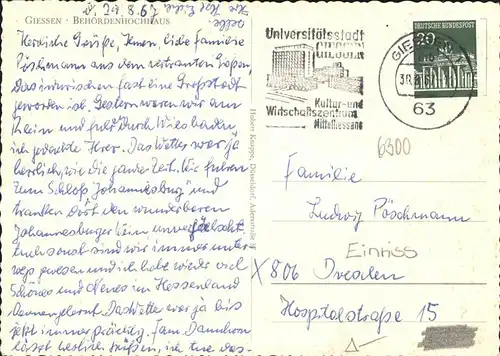 GIESSEN · BEHÖRDENHOCHHAUS
Herzliche Grüße, Ihnen, liebe Familie
Pöschmann dem vertrauten Gießen,
Das inzwischen fast eine Großstadt
geworden ist. Gestern waren wir am
Rhein und fuhr durch Wiesbaden,
ich gedachte Ihrer. Das Wetter war ja
herrlich, wie die ganze Zeit. Wir fuhren
zum Schloß „Johannesburg" und
tranken dort den wunderbaren
Johannesburger Wein unverfälscht.
Auch sonst sind wir immer unter-
wegs gewesen und ich habe wieder viel
Schönes und Neues im Hessenland
kennengelernt. Das Wetter war ja bis
jetzt immer prächtig.
lässt herzlich grüßen, ich tue das
Universitätsstadt
GIESSEN
Kultur-und
Wirtschaftszentrum
Mittelhessens
GIE
63
DEUTSCHE BUNDESPOST
20
6300
Familie
Ludwig Pöschmann
Einriss
X 806 Dresden
Hospitalstraße 15